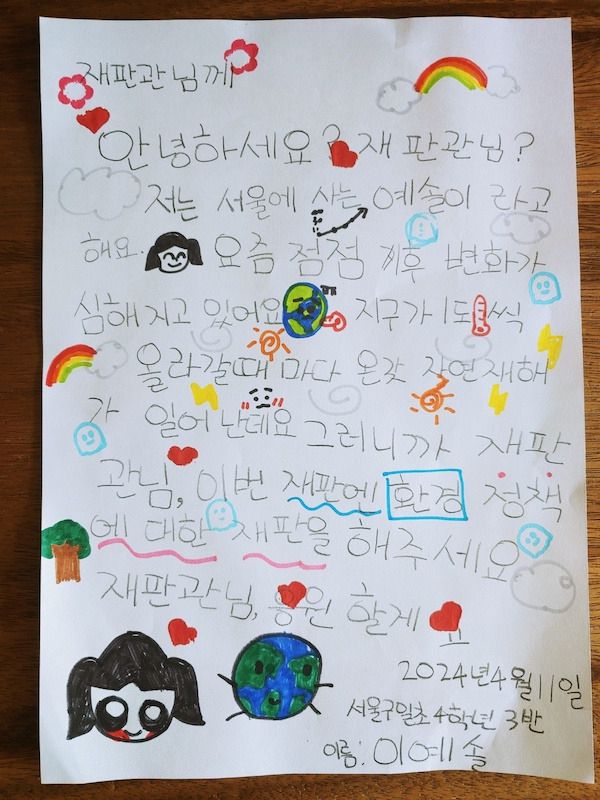 재판관님께
안녕하세요? 재판관님?
저는 서울에 사는 예솔이 라고
해요. 요즘 점점 기후 변화가
심해지고 있어요 지구가 1도 씩
올라갈때 마다 온갖 자연재해
가 일어난데요 그러니까 재판
관님, 이번 재판엔 환경 정책
에 대한 재판을 해주세요
재판관님, 응원 할게요
2024년4월11일
서울구일초 4학년 3반
이름: 이예솔